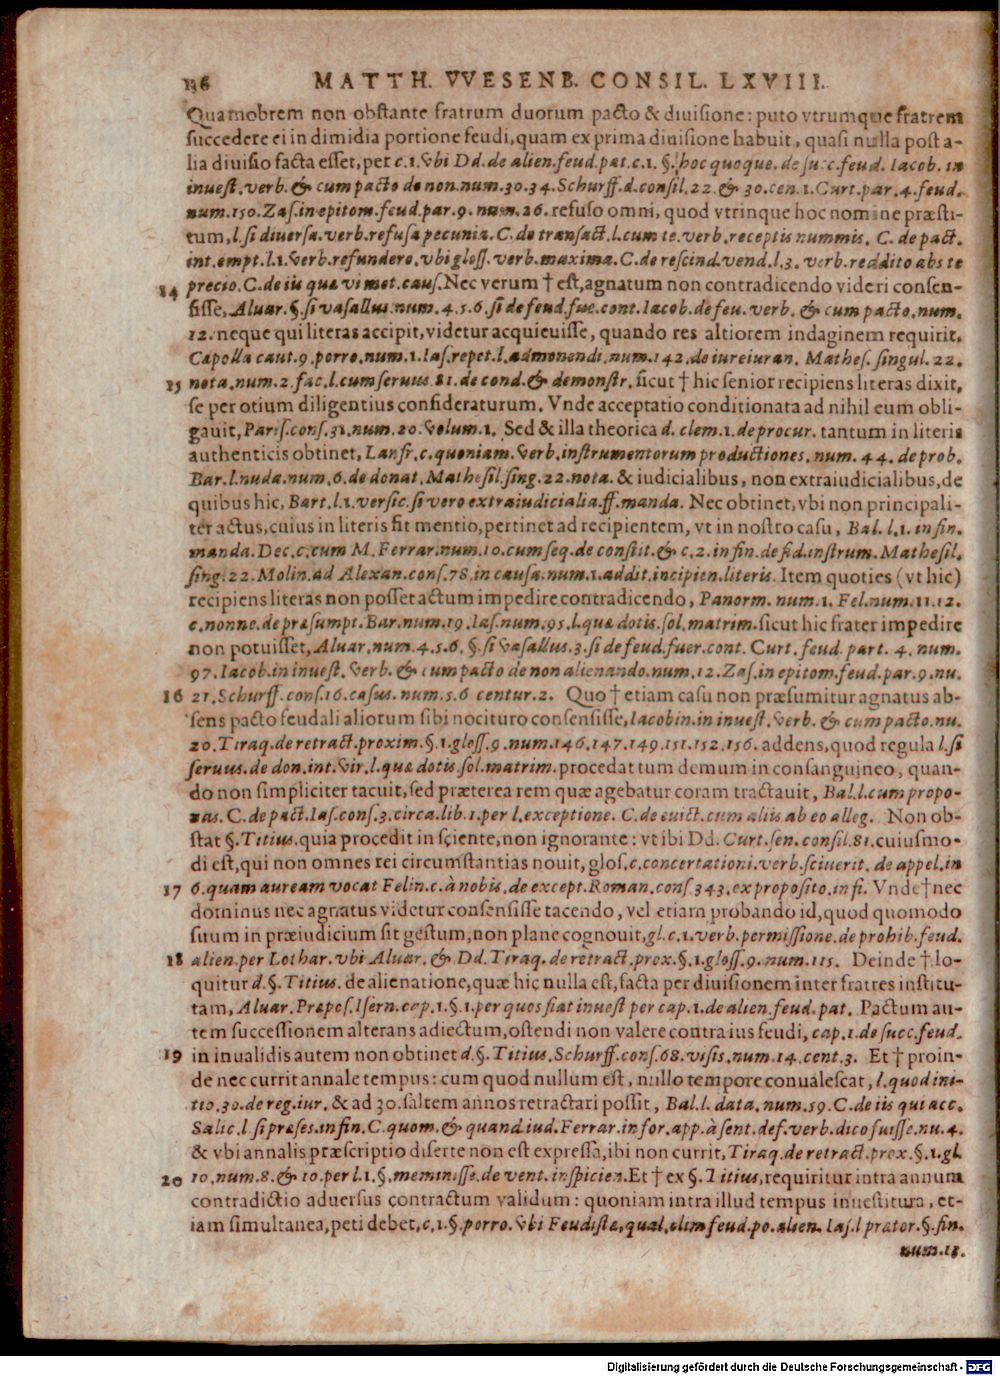 136 MATTH. VVESENB. CONSIL. LXVIII.
Quamobrem non obstante fratrum duorum pacto & diuisione: puto vtrumque fratrem
succedere ei in dimidia portione feudi, quam ex prima diuisione habuit, quasi nulla post a-
lia diuisio facta esset, per c.1. vbi Dd. de alien. feud. pat. c.1. §. hoc quoque. de succ. feud. Iacob. in
inuest. verb. & cum pacto de non. num. 30. 34. Schurff. d. consil. 22. & 30. cen. 1. Curt. par. 4. feud.
num. 150. Zas. in epitom. feud. par. 9. num. 26. refuso omni, quod vtrinque hoc nomine præsti-
tum, l. si diuersa. verb. refusa pecunia. C. de transact. l. cum te. verb. receptis nummis. C. de pact.
int. empt. l. 1. verb. refundere. vbi gloss. verb. maxima. C. de rescind. vend. l. 3. verb. reddito abs te
14 precio. C. de iis quæ vi met. caus. Nec verum † est, agnatum non contradicendo videri consen-
sisse, Aluar. §. si vasallus. num. 4. 5. 6. si de feud. fue. cont. Iacob. de feu. verb. & cum pacto, num.
12. neque qui literas accipit, videtur acquieuisse, quando res altiorem indaginem requirit.
Capolla caut. 9. porro. num. 1. Ias. repet. l. admonendi. num. 142. de iureiuran. Mathes. singul. 22.
15 nota. num. 2. fac. l. cum seruus. 81. de cond. & demonstr. sicut † hic senior recipiens literas dixit,
se per otium diligentius consideraturum. Vnde acceptatio conditionata ad nihil eum obli-
gauit, Paris. cons. 31. num. 20. volum. 1. Sed & illa theorica d. clem. 1. de procur. tantum in literis
authenticis obtinet, Lanfr. c. quoniam. verb. instrumentorum productiones. num. 44. de prob.
Bar. l. nuda. num. 6. de donat. Mathesil. sing. 22. nota. & iudicialibus, non extraiudicialibus, de
quibus hic, Bart. l. 1. versic. si vero extraiudicialia. ff. manda. Nec obtinet, vbi non principali-
ter actus, cuius in literis fit mentio, pertinet ad recipientem, vt in nostro casu, Bal. l. 1. in fin.
manda. Dec. c. cum M. Ferrar. num. 10. cum seq. de constit. & c. 2. in fin. de fid. instrum. Mathesil.
sing. 22. Molin. ad Alexan. cons. 78. in causa. num. 1. addit. incipien. literis. Item quoties (vt hic)
recipiens literas non posset actum impedire contradicendo, Panorm. num. 1. Fel. num. 11. 12.
c. nonne. de præsumpt. Bar. num. 19. Ias. num. 95. l. quæ dotis. sol. matrim. sicut hic frater impedire
non potuisset, Aluar. num. 4. 5. 6. §. si vasallus. 3. si de feud. fuer. cont. Curt. feud. part. 4. num.
97. Iacob. in inuest. verb. & cum pacto de non alienando. num. 12. Zas. in epitom. feud. par. 9. nu.
16 21. Schurff. cons. 16. casus. num. 5. 6 centur. 2. Quo † etiam casu non præsumitur agnatus ab-
sens pacto feudali aliorum sibi nocituro consensisse, Iacobin. in inuest. verb. & cum pacto. nu.
20. Tiraq. de retract. proxim. §. 1. gloss. 9. num. 146. 147. 149. 151. 152. 156. addens, quod regula l. si
seruus. de don. int. vir. l. quæ dotis. sol. matrim. procedat tum demum in consanguineo, quan-
do non simpliciter tacuit, sed præterea rem quæ agebatur coram tractauit, Bal. l. cum propo-
nas. C. de pact. Ias. cons. 3. circa. lib. 1. per l. exceptione. C. de euict. cum aliis ab eo alleg. Non ob-
stat §. Titius. quia procedit in sciente, non ignorante: vt ibi Dd. Curt. sen. consil. 81. cuiusmo-
di est, qui non omnes rei circumstantias nouit, glos. c. concertationi. verb. sciuerit. de appel. in
17 6. quam auream vocat Felin. c. à nobis. de except. Roman. cons. 343. ex proposito. in fi. Vnde † nec
dominus nec agnatus videtur consensisse tacendo, vel etiam probando id, quod quomodo
suum in præiudicium sit gestum, non plane cognouit, gl. c. 1. verb. permissione. de prohib. feud.
18 alien. per Lothar. vbi Aluar. & Dd. Tiraq. de retract. prox. §. 1. gloss. 9. num. 115. Deinde † lo-
quitur d. §. Titius. de alienatione, quæ hic nulla est, facta per diuisionem inter fratres institu-
tam, Aluar. Præpos. Isern. cap. 1. §. 1. per quos fiat inuest per cap. 1. de alien. feud. pat. Pactum au-
tem successionem alterans adiectum, ostendi non valere contra ius feudi, cap. 1. de succ. feud.
19 in inualidis autem non obtinet d. §. Titius. Schurff. cons. 68. visis. num. 14. cent. 3. Et † proin-
de nec currit annale tempus: cum quod nullum est, nullo tempore conualescat, l. quod ini-
tio. 30. de reg. iur. & ad 30. saltem annos retractari possit, Bal. l. data. num. 59. C. de iis qui acc.
Salic. l. si præses. in fin. C. quom. & quand. iud. Ferrar. in for. app. à sent. def. verb. dico fuisse. nu. 4.
& vbi annalis præscriptio diserte non est expressa, ibi non currit, Tiraq. de retract. prox. §. 1. gl.
20 10. num. 8. & 10. per l. 1. §. meminisse. de vent. inspicien. Et † ex §. Titius, requiritur intra annum
contradictio aduersus contractum validum: quoniam intra illud tempus inuestitura, et-
iam simultanea, peti debet, c. 1. §. porro. vbi Feudistæ, qual. olim feud. po. alien. Ias. l prætor. §. fin.
num. 15.
Digitalisierung gefördert durch die Deutsche Forschungsgemeinschaft - DFG